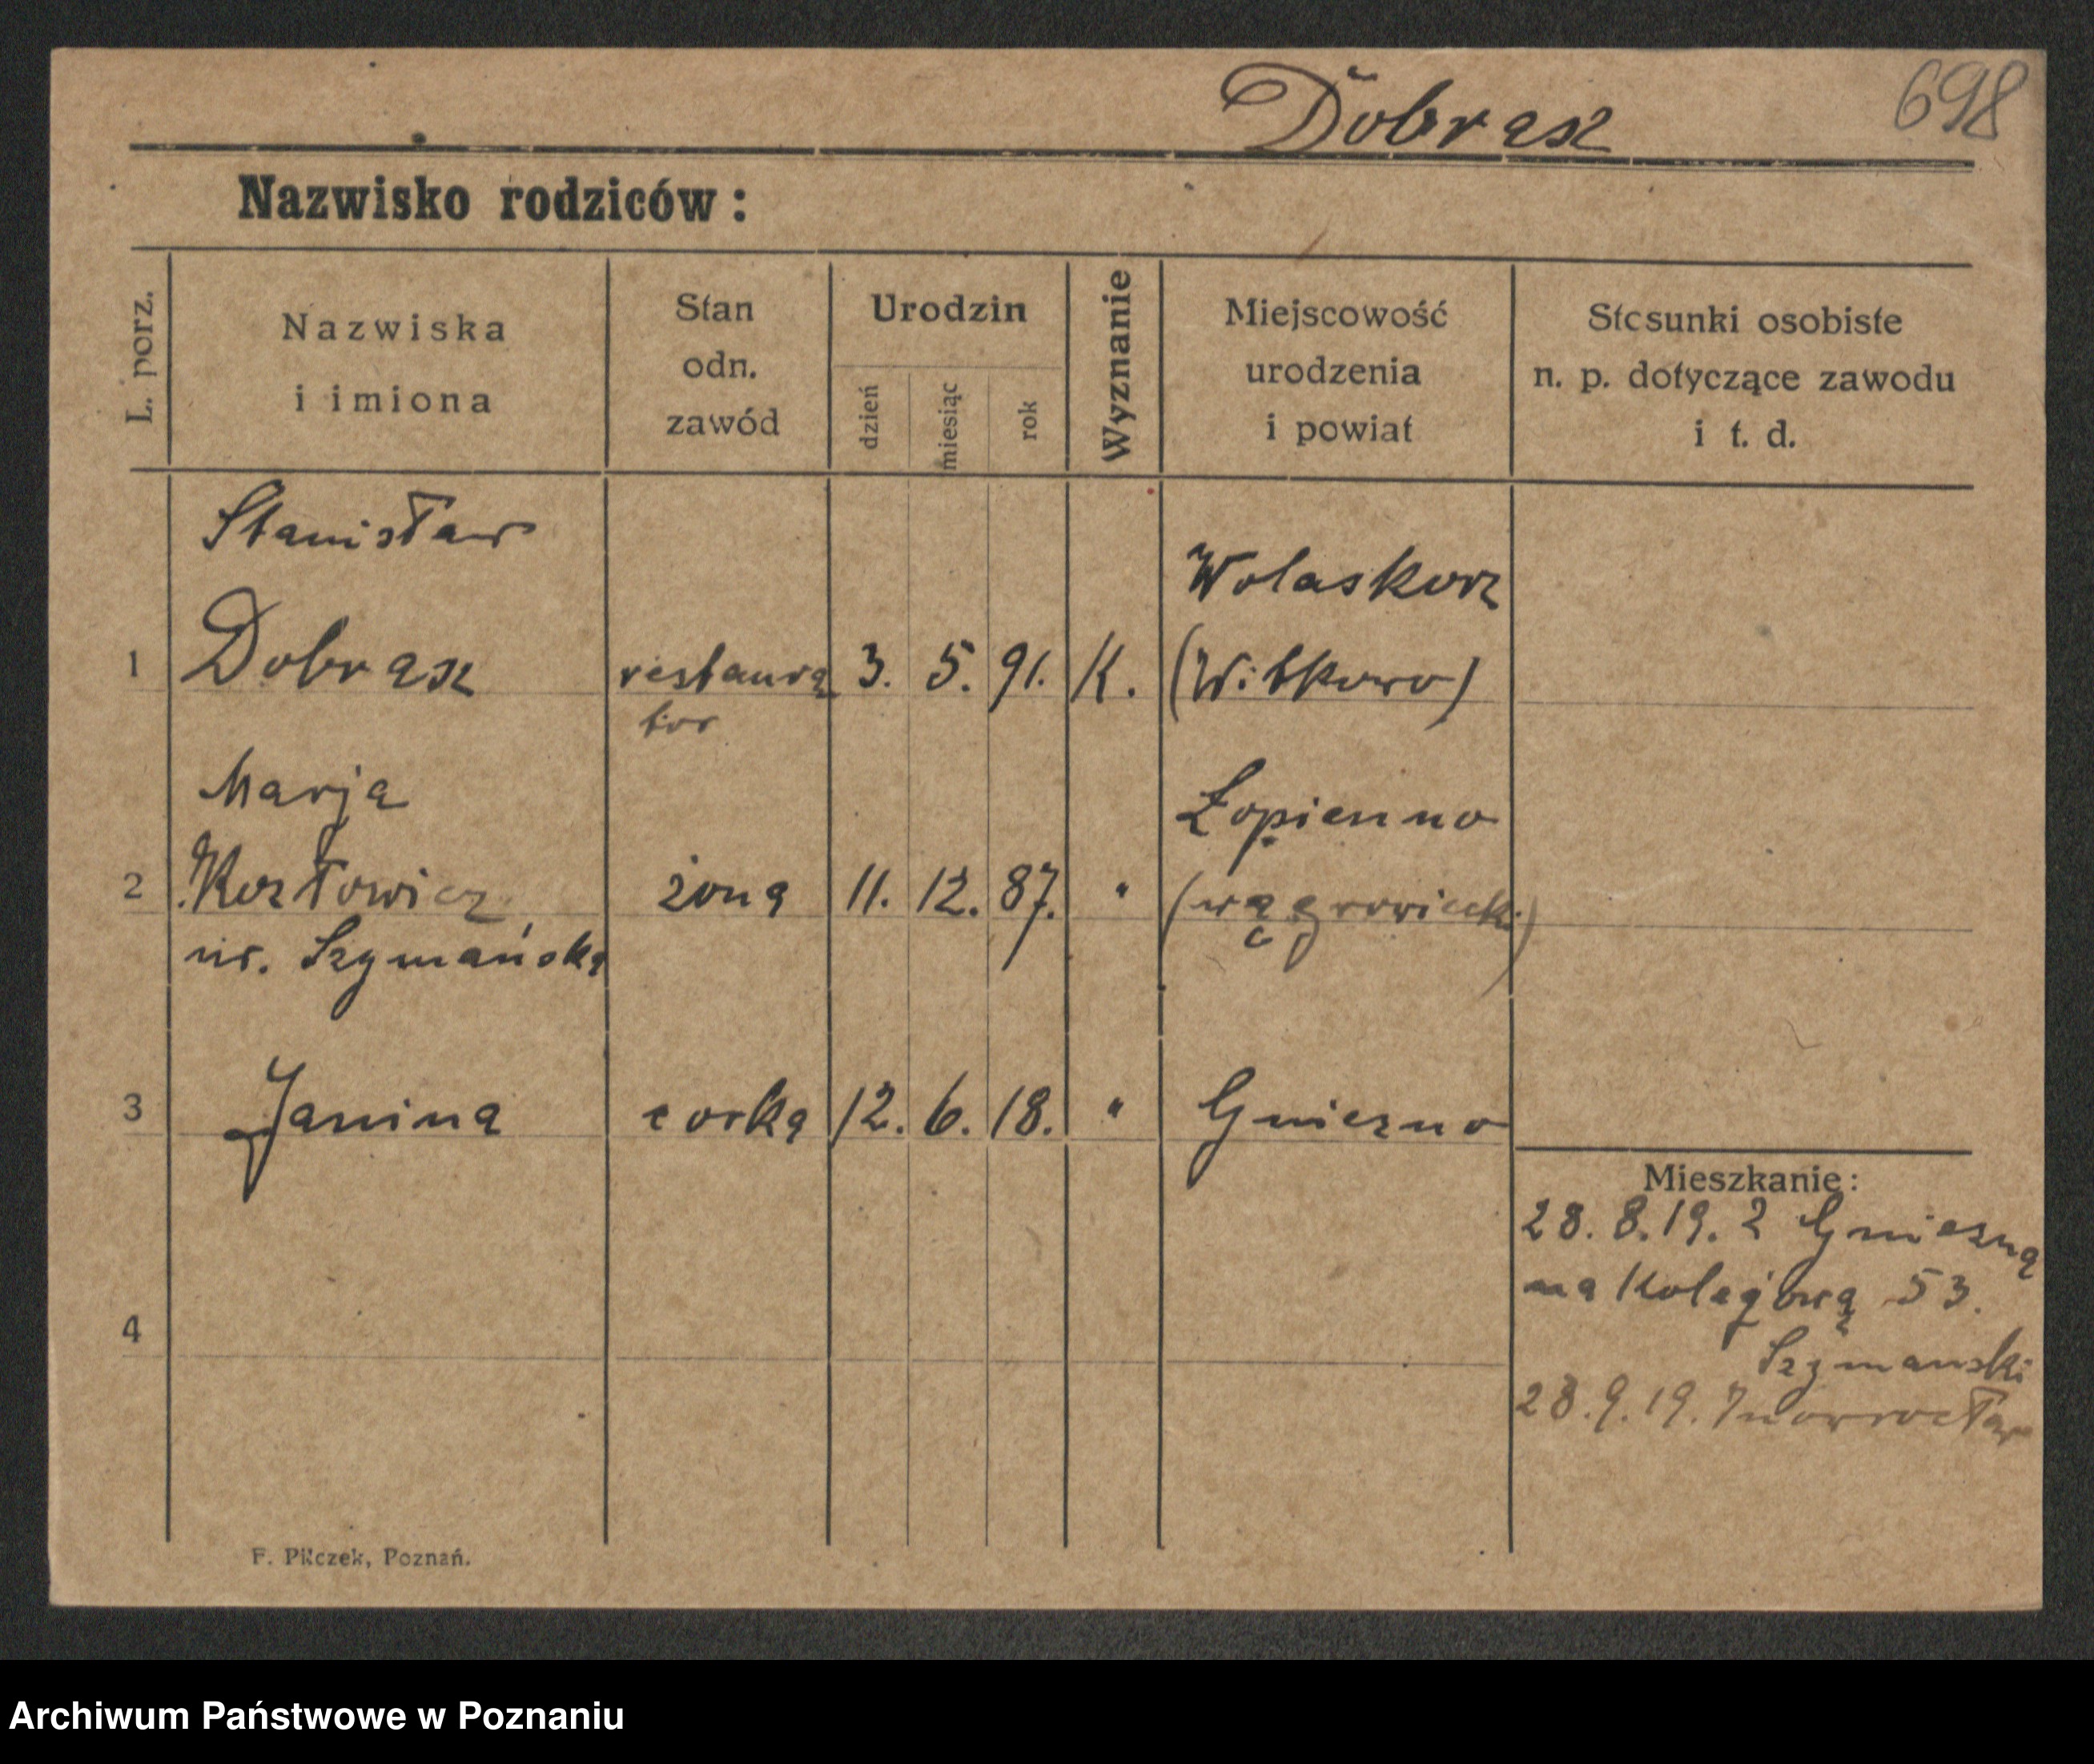 Dobrasz
698
Nazwisko rodziców:
L. porz.
Nazwiska
i imiona
Stan
odn.
zawód
Urodzin
dzień
miesiąc
rok
Wyznanie
Miejscowość
urodzenia
i powiat
Stosunki osobiste
n. p. dotyczące zawodu
i t. d.
Stanisław
1 Dobrasz restaura 3. 5. 91. K.
tor
Wolaskorz
(Witkowo)
Marja
2 żona 11. 12. 87. "
nr. Szymańska
Łopienno
(wągrowieck.)
3 Janina corka 12. 6. 18. " Gniezno
4
Mieszkanie:
28. 8. 19. z Gniezna
na Kolejową 53.
Szymanski
28. 9. 19. Inowrocław
F. Pilczek, Poznań.
Archiwum Państwowe w Poznaniu